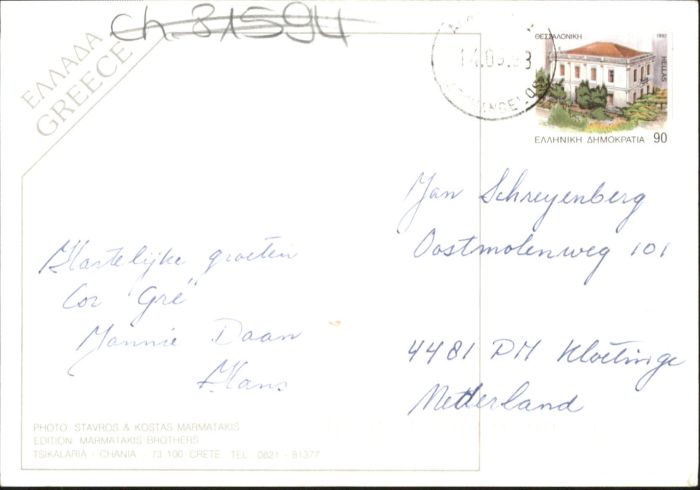 Ch 31594
ΕΛΛΑΔΑ
GREECE
ΘΕΣΣΑΛΟΝΙΚΗ 1992
HELLAS
ΕΛΛΗΝΙΚΗ ΔΗΜΟΚΡΑΤΙΑ 90
Hartelijke groeten
Cor Gré
Jannie Daan
Hans
Jan Schreyenberg
Oostmolenweg 101
4481 PM Kloetinge
Netterland
PHOTO: STAVROS & KOSTAS MARMATAKIS
EDITION: MARMATAKIS BROTHERS
TSIKALARIA - CHANIA - 73 100 CRETE TEL 0821 - 81377